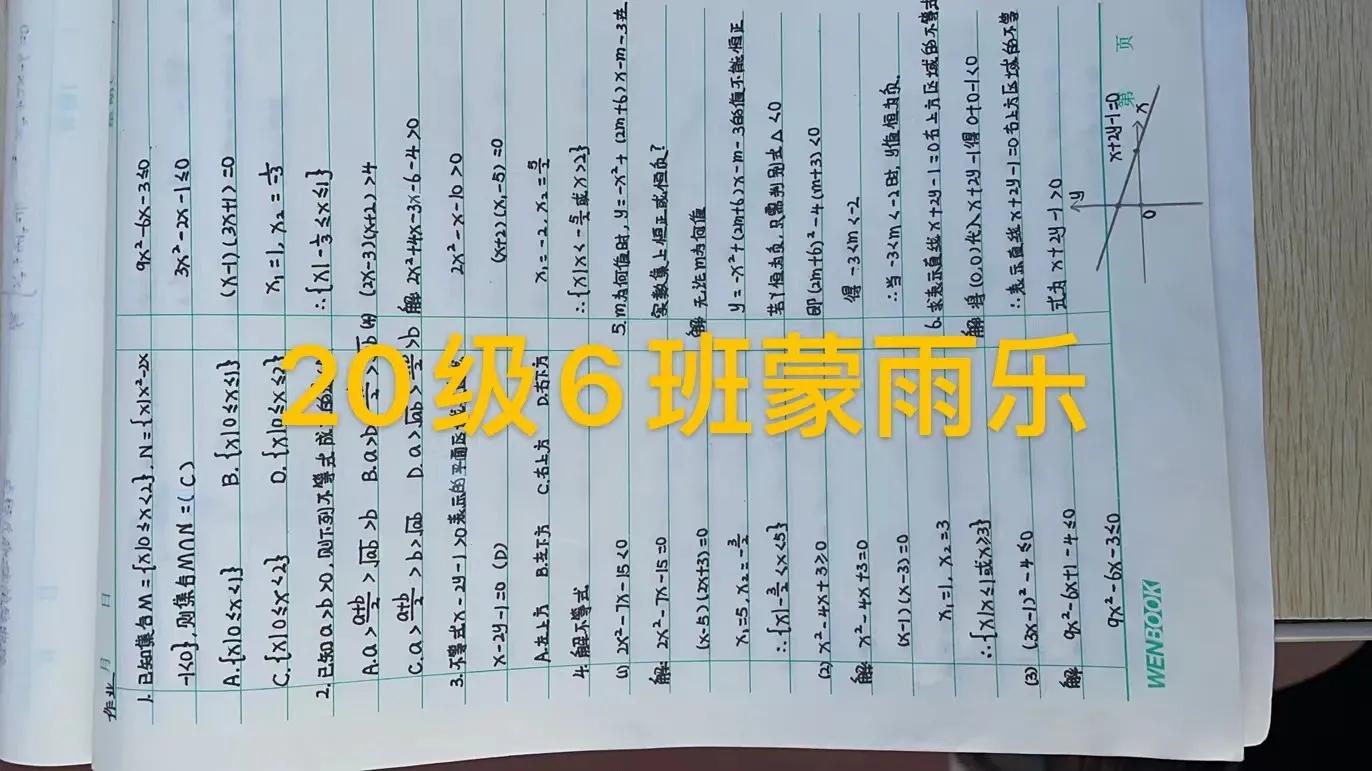 作业 月 日
1. 已知集合M={x|0≤x<2}, N={x|x²-2x
-1<0}, 则集合M∩N=(C)
A.{x|0≤x<1} B.{x|0≤x≤1}
C.{x|0≤x<2} D.{x|0≤x≤2}
2. 已知a>b>0, 则下列不等式成
A.a>\frac{a+b}{2}>\sqrt{ab}>b B.a>b
C.a>\frac{a+b}{2}>b>\sqrt{ab} D.a>\sqrt{ab}>\frac{a+b}{2}>b
3.不等式x-2y-1>0表示的平面区
x-2y-1=0 (D)
A.左上方 B.左下方 C.右上方 D.右下方
4. 解不等式
(1) 2x²-7x-15<0
解 2x²-7x-15=0
(x-5)(2x+3)=0
x₁=5, x₂=-\frac{3}{2}
∴{x|-\frac{3}{2}<x<5}
(2) x²-4x+3≥0
解 x²-4x+3=0
(x-1)(x-3)=0
x₁=1, x₂=3
∴{x|x≤1或x≥3}
(3) (3x-1)²-4≤0
解 9x²-6x+1-4≤0
9x²-6x-3≤0
9x²-6x-3≤0
3x²-2x-1≤0
(x-1)(3x+1)=0
x₁=1, x₂=-\frac{1}{3}
∴{x|-\frac{1}{3}≤x≤1}
(4) (2x-3)(x+2)>4
解 2x²+4x-3x-6-4>0
2x²-x-10>0
(x+2)(x-5)=0
x₁=-2, x₂=\frac{5}{2}
∴{x|x<-\frac{5}{2}或x>2}
5. m为何值时, y=-x²+(2m+6)x-m-3在
实数集上恒正或恒负?
解 无论m为何值
y=-x²+(2m+6)x-m-3的值不能恒正
若y恒为负, 只需判别式△<0
即(2m+6)²-4(m+3)<0
得-3<m<-2
∴当-3<m<-2时, y值恒为负.
6. 求表示直线x+2y-1=0右上方区域的不等式
解 将(0,0)代入x+2y-1得0+0-1<0
∴表示直线x+2y-1=0右上方区域的不等
式为x+2y-1>0
x+2y-1=0
y
x
0
第 页
WENBOOK
20级6班蒙雨乐